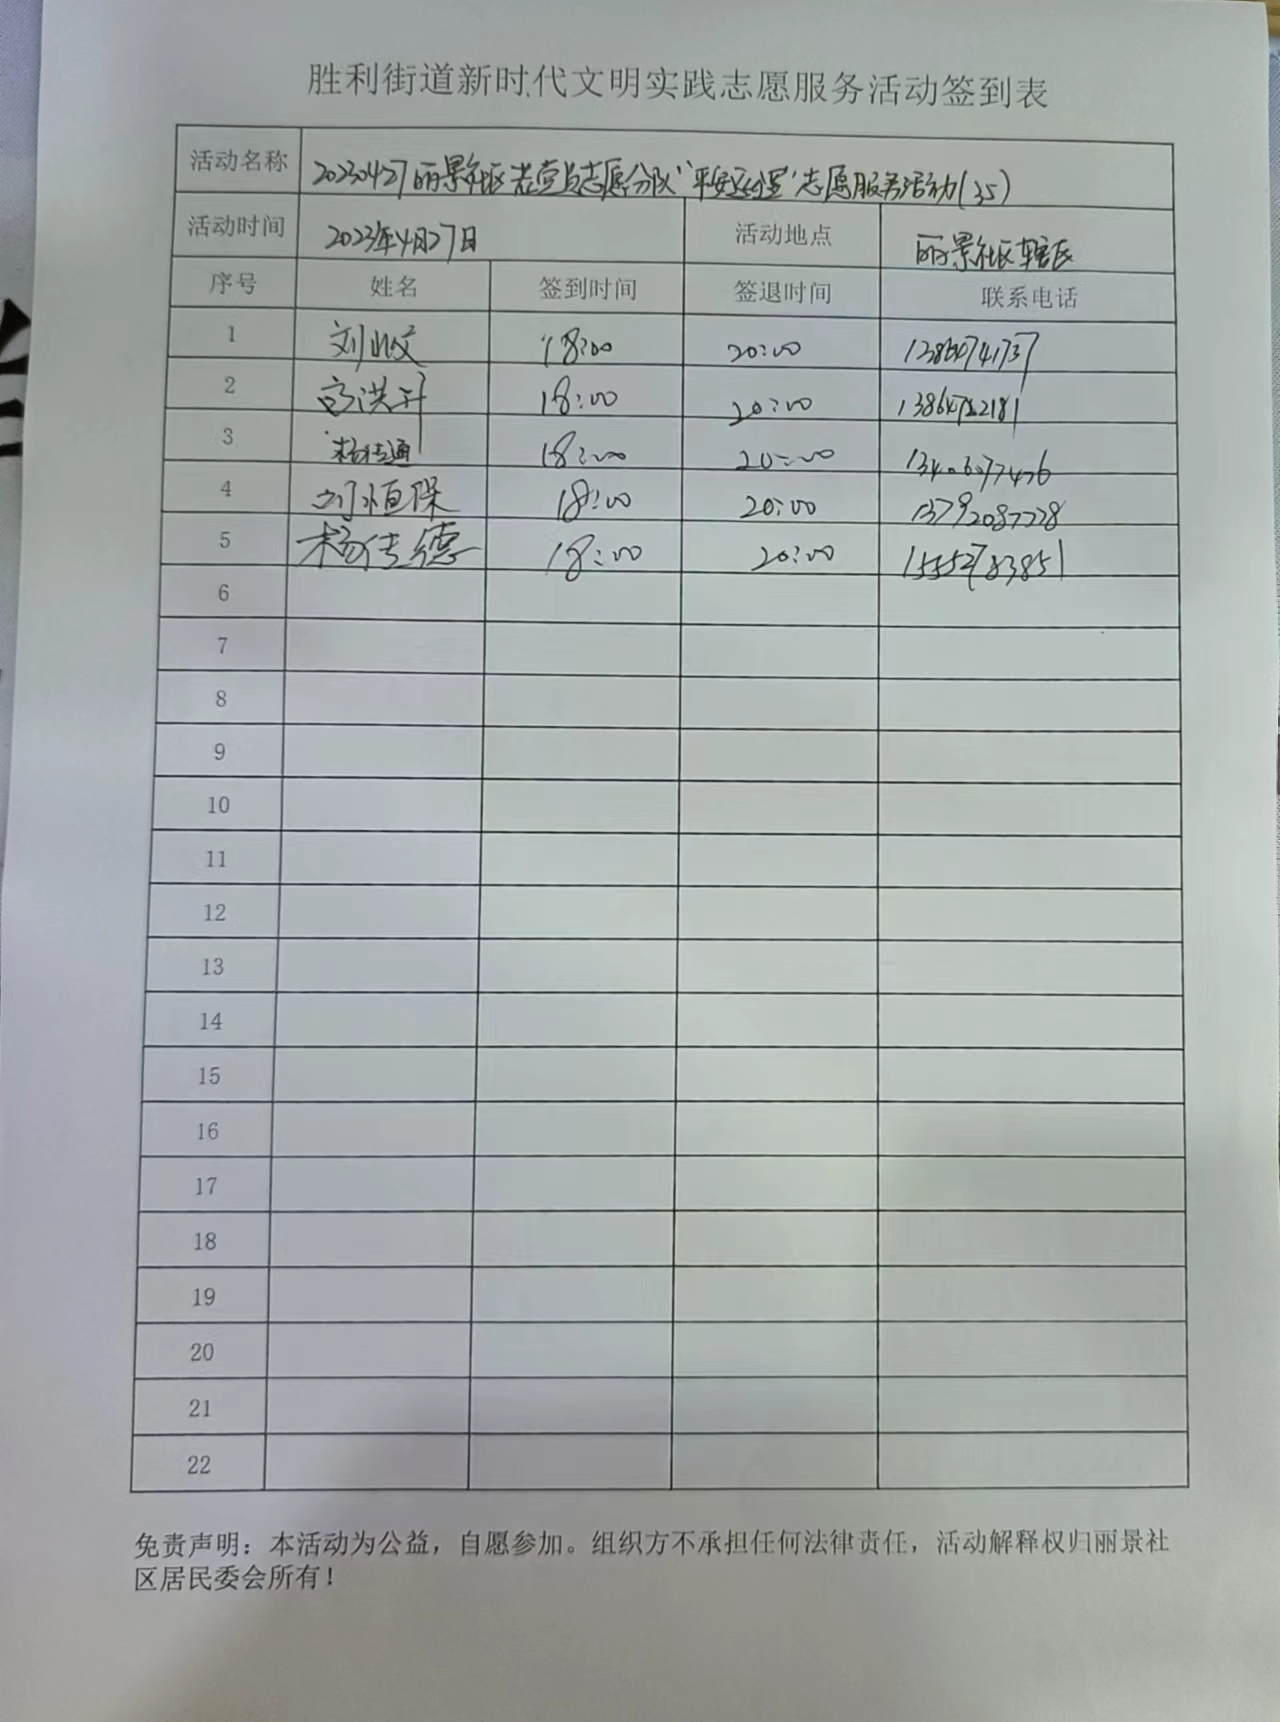 胜利街道新时代文明实践志愿服务活动签到表
活动名称 20230427丽景社区老党员志愿分队"平安巡逻"志愿服务活动(35)
活动时间 2023年4月27日 活动地点 丽景社区辖区
序号 姓名 签到时间 签退时间 联系电话
1 18:00 20:00
2 高洪升 18:00 20:00
3 杨传通 18:00 20:00 13406077476
4 刘恒保 18:00 20:00 13792087778
5 杨传德 18:00 20:00 15552783851
6
7
8
9
10
11
12
13
14
15
16
17
18
19
20
21
22
免责声明：本活动为公益，自愿参加。组织方不承担任何法律责任，活动解释权归丽景社
区居民委会所有！